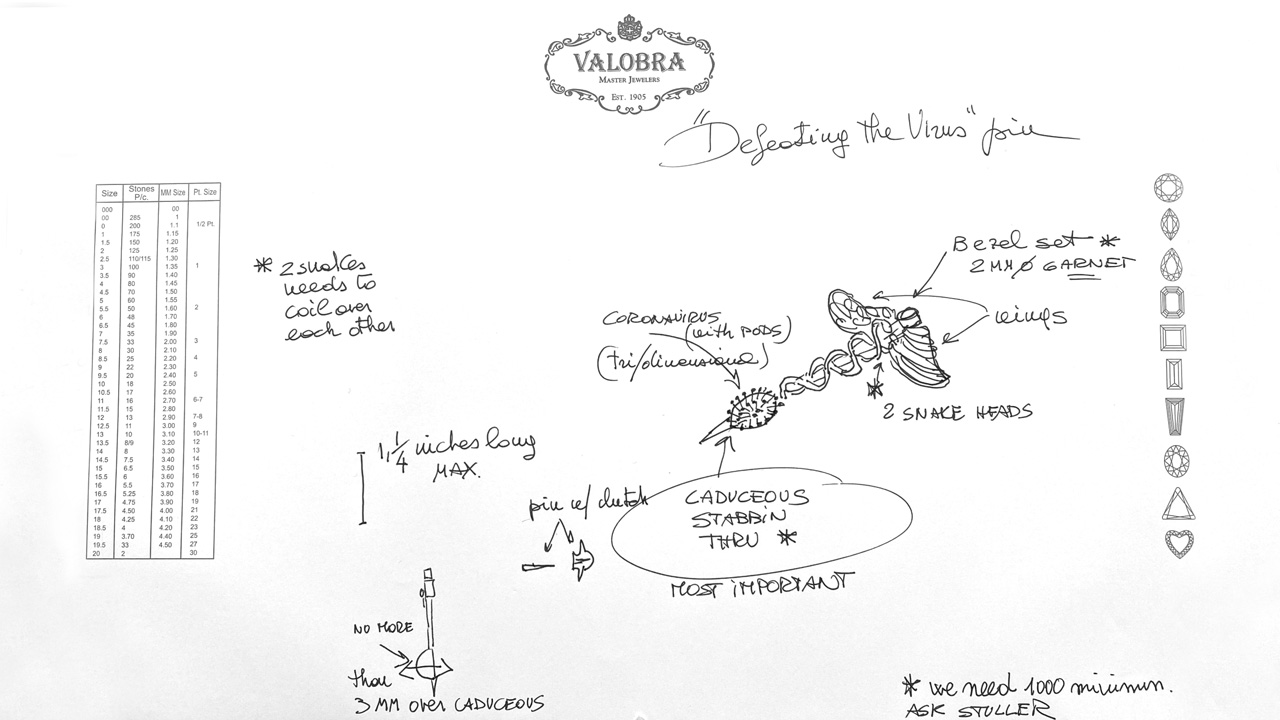 VALOBRA
MASTER JEWELERS
EST. 1905
"Defeating the Virus" pin
Size Stones P/c. MM Size Pt. Size
000 00
00 285 1
0 200 1.1 1/2 Pt.
1 175 1.15
1.5 150 1.20
2 125 1.25
2.5 110/115 1.30
3 100 1.35 1
3.5 90 1.40
4 80 1.45
4.5 70 1.50
5 60 1.55
5.5 50 1.60 2
6 48 1.70
6.5 45 1.80
7 35 1.90
7.5 33 2.00 3
8 30 2.10
8.5 25 2.20 4
9 22 2.30
9.5 20 2.40 5
10 18 2.50
10.5 17 2.60
11 16 2.70 6-7
11.5 15 2.80
12 13 2.90 7-8
12.5 11 3.00 9
13 10 3.10 10-11
13.5 8/9 3.20 12
14 8 3.30 13
14.5 7.5 3.40 14
15 6.5 3.50 15
15.5 6 3.60 16
16 5.5 3.70 17
16.5 5.25 3.80 18
17 4.75 3.90 19
17.5 4.50 4.00 21
18 4.25 4.10 22
18.5 4 4.20 23
19 3.70 4.40 25
19.5 33 4.50 27
20 2 30
* 2 snakes
needs to
coil over
each other
Bezel set *
2 MM ∅ GARNET
wings
CORONAVIRUS
(with PODS)
(tri/dimensional)
* 2 SNAKE HEADS
1,1/4 inches long
MAX.
pin w/ clutch
CADUCEOUS
STABBIN
THRU *
MOST IMPORTANT
NO MORE
than
3 MM over CADUCEOUS
* we need 1000 minimum.
ASK STULLER